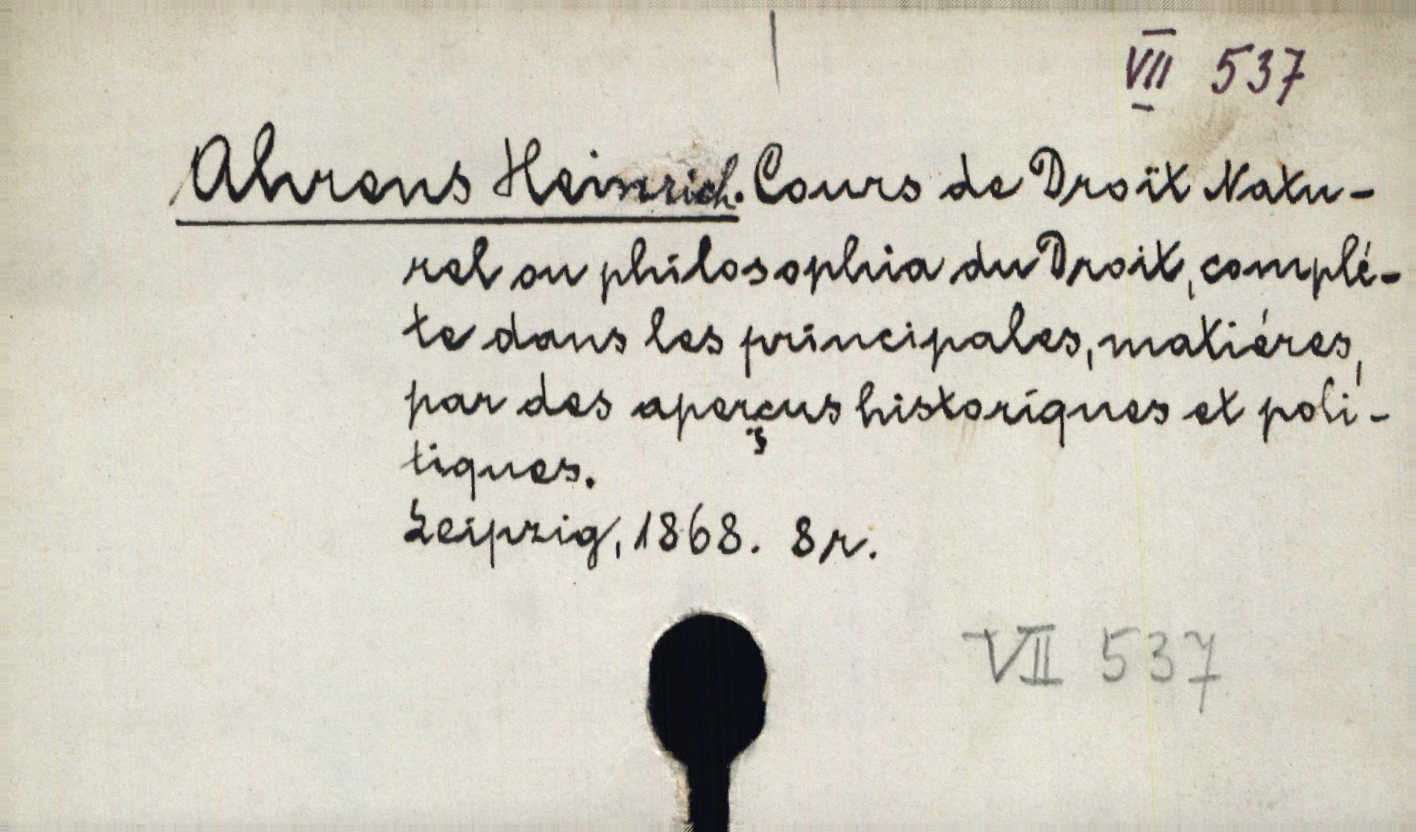 VII 537
Ahrens Heinrich. Cours de Droit Natu-
rel ou philosophia du Droit, complé-
te dans les principales, matiéres,
par des aperçus historiques et poli-
tiques.
Leipzig, 1868. 8r.
VII 537